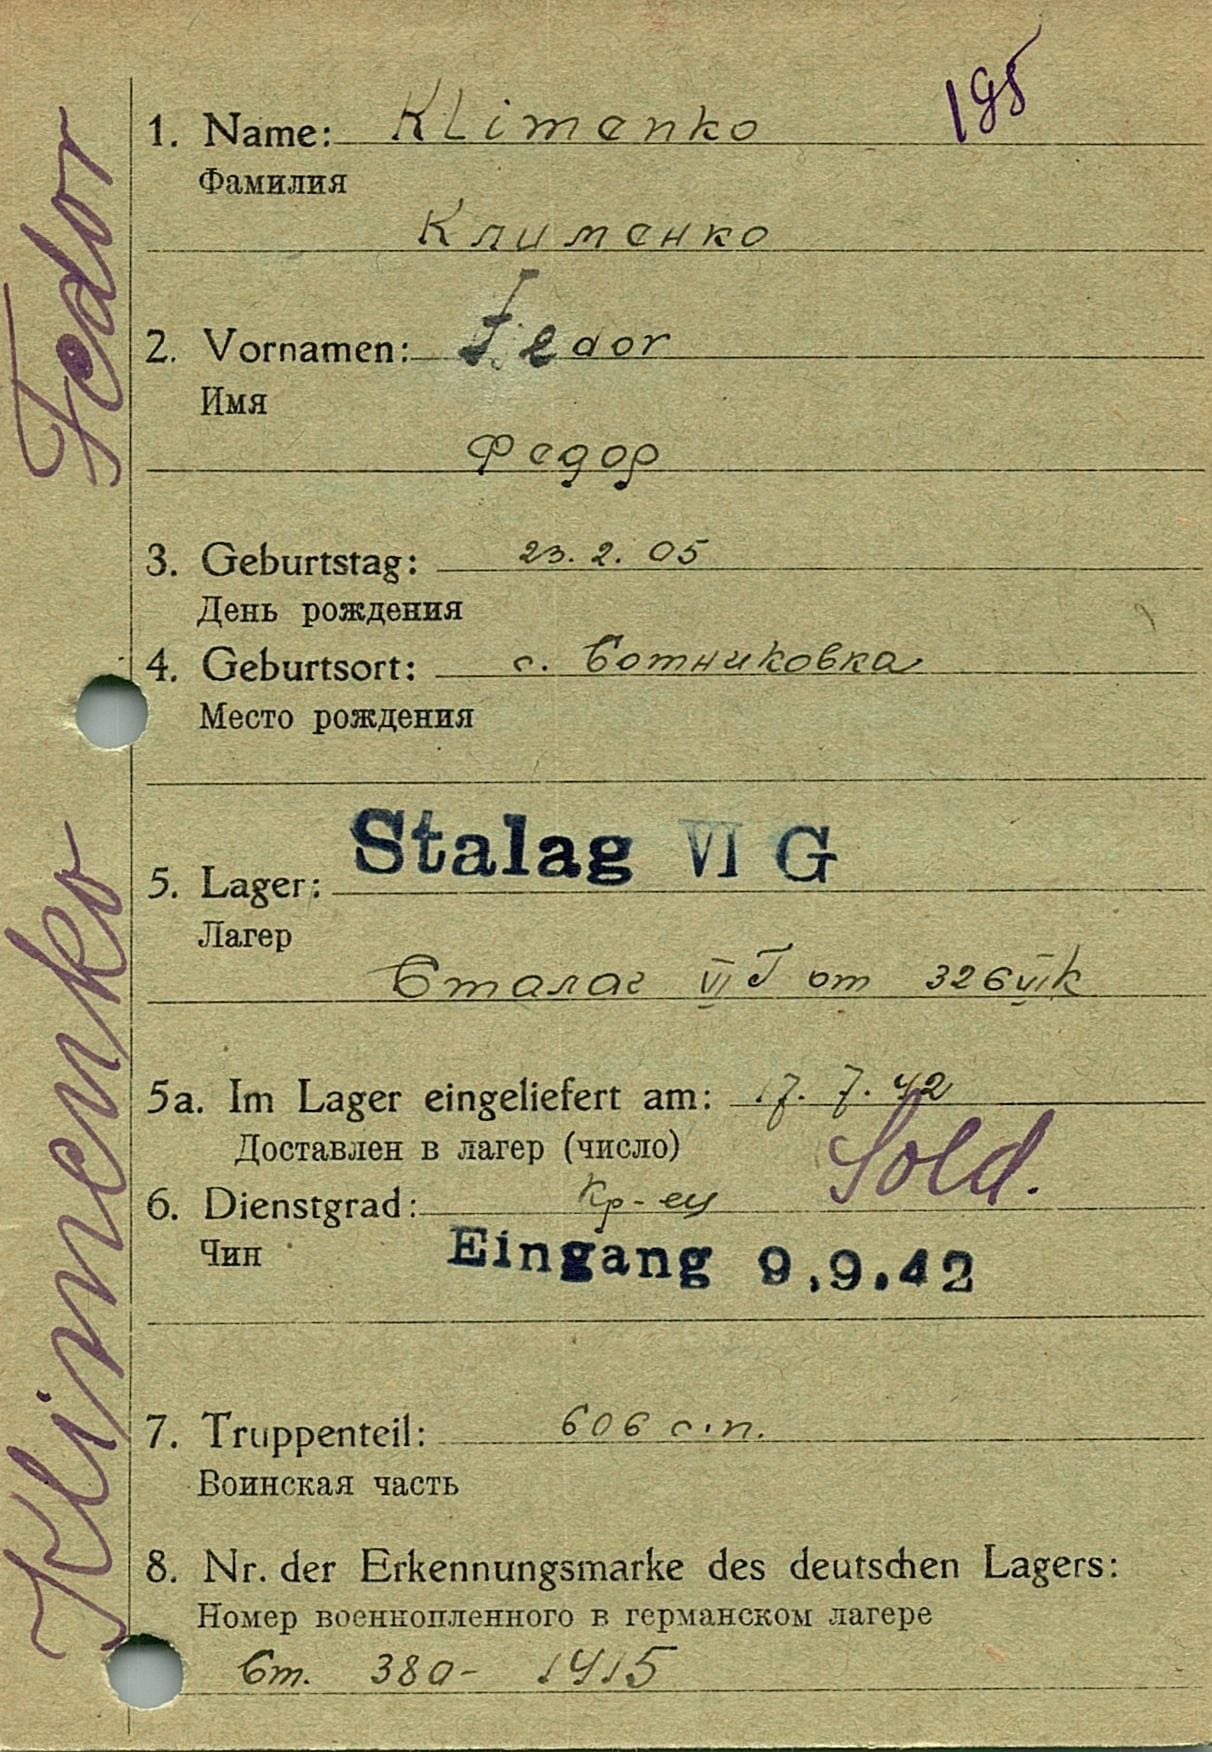 195
1. Name: Klimenko
Фамилия
Клименко
2. Vornamen: Fedor
Имя
Федор
3. Geburtstag: 23. 2. 05
День рождения
4. Geburtsort: с. Сотниковка
Место рождения
Stalag VI G
5. Lager:
Лагер
Сталаг VI Г от 326 VI K
5a. Im Lager eingeliefert am: 17. 7. 42
Доставлен в лагер (число)
Sold.
6. Dienstgrad: Кр-ец
Чин
Eingang 9.9.42
7. Truppenteil: 606 с.п.
Воинская часть
8. Nr. der Erkennungsmarke des deutschen Lagers:
Номер военнопленного в германском лагере
Ст. 380- 1415
Klimenko Fedor